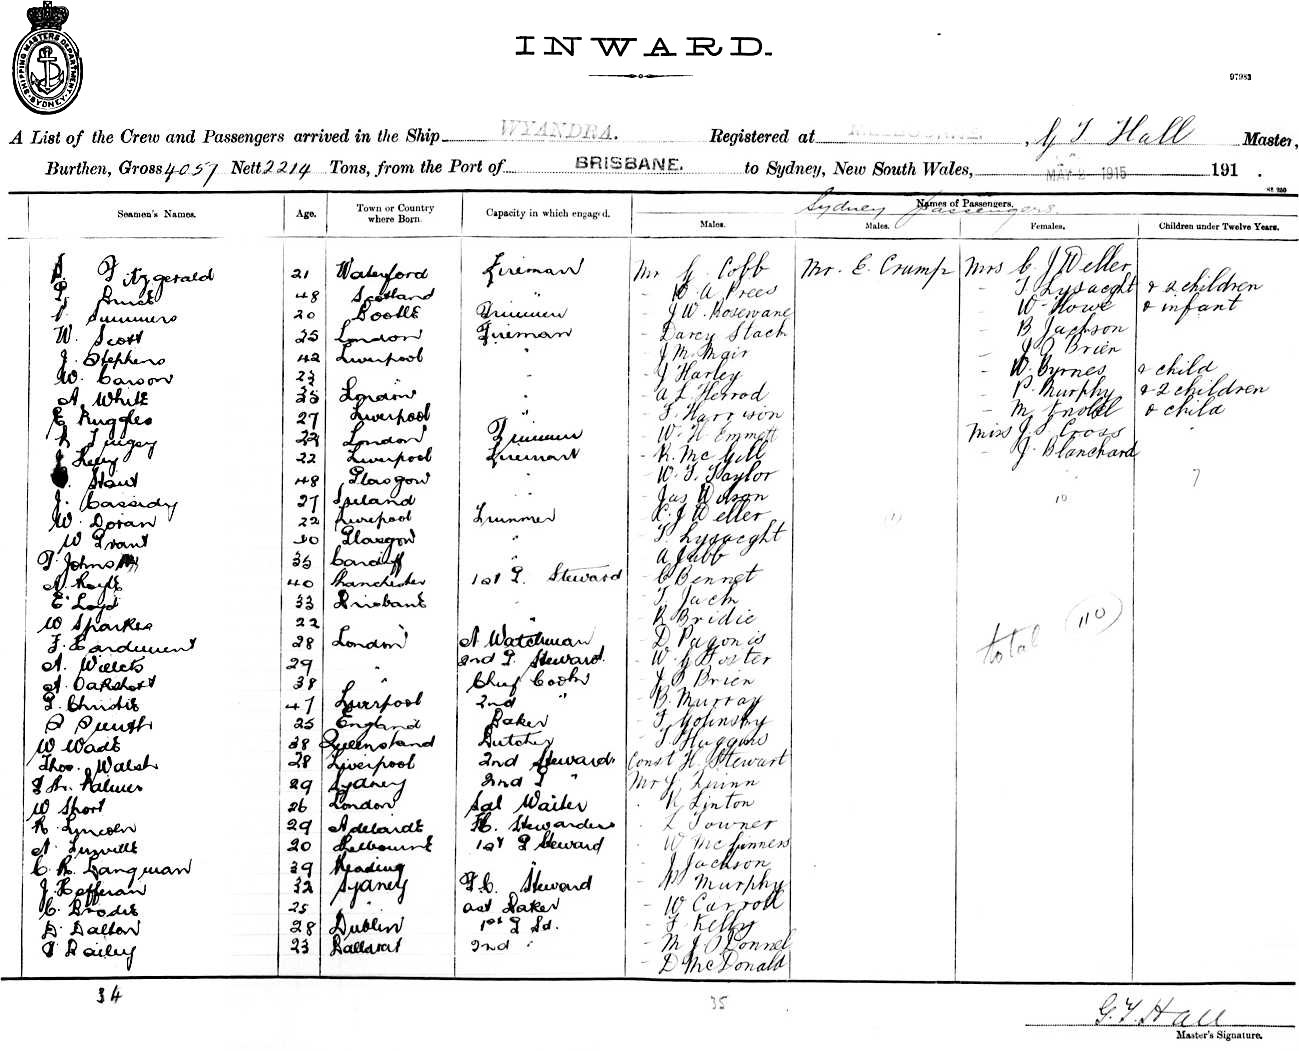 SHIPPING MASTERS DEPARTMENT SYDNEY
INWARD.
97983
A List of the Crew and Passengers arrived in the Ship WYANDRA. Registered at MELBOURNE. , G T Hall Master,
Burthen, Gross 4057 Nett 2214 Tons, from the Port of BRISBANE. to Sydney, New South Wales, MAY 2 1915 191 .
Seamen's Names. Age. Town or Country where Born. Capacity in which engaged. Names of Passengers.
Sydney Passengers
Males. Males. Females. Children under Twelve Years.
Fitzgerald 21 Waterford Fireman Mr G. Cobb Mr. E. Crump Mrs C J Weller
Bruce 48 Scotland " - W. A. Prees - T Lysaeght & 2 children
Summers 20 Bootle Trimmer - J W. Rosewane - W Howe & infant
W. Scott 25 London Fireman - Darcy Stack - B Jackson
J. Stephens 42 Liverpool " - J M. Mair - J O Brien
W. Carson 23 " " - J Harley - W. Byrnes & child
A. White 25 London " - A L Herrod - P. Murphy & 2 children
E Ruggles 27 Liverpool " - T. Harrison - M & child
Tingey London Trimmer - W. H Emmett Miss J. S. Cross
J Kelly 22 Liverpool Fireman - R. McGill - J. Blanchard
Stout 48 Glasgow " - W. T. Taylor 7
J. Cassidy 27 Ireland " - Jas Wilson 10
W. Doran 22 Liverpool Trimmer - C. J Weller (1)
W Grant Glasgow " - T Lysaeght
Johns 35 Cardiff " - A Jubb
A. Royle 40 Manchester 1st S. Steward - C Bennet
E. Loyd 33 Brisbane " - T. Jack
W Sparkes 22 " " - R Bridie
F. Hardiment 28 London A Watchman - D Pagonis total (110)
A. 29 " 2nd S. Steward - W. G Foster
A. Oakshott 38 " Chief Cook - J O Brien
Christie 47 Liverpool 2nd " - B. Murray
25 England Baker - T
W Wade 38 Queensland Butcher - T. Huggins
Thos. Walsh 28 Liverpool 2nd Steward Const H. Stewart
Palmer 29 Sydney 2nd S " Mr J Quinn
W Short 26 London Sal Waiter - R Linton
R. Lincoln 29 Adelaide Stewardess - L Towner
A. 20 Melbourne 1st S Steward - W McGinness
C. R. Langman 39 Reading " - J Jackson
J. Heffernan 32 Sydney F. C. Steward - P Murphy
C. Brodie 25 " Ast Baker - W Carroll
D. Dalton 28 Dublin 1st S Sd. - T Kelly
Bailey 23 Ballarat 2nd " - M J O'Connel
- D McDonald
34 35
G. T. Hall
Master's Signature.